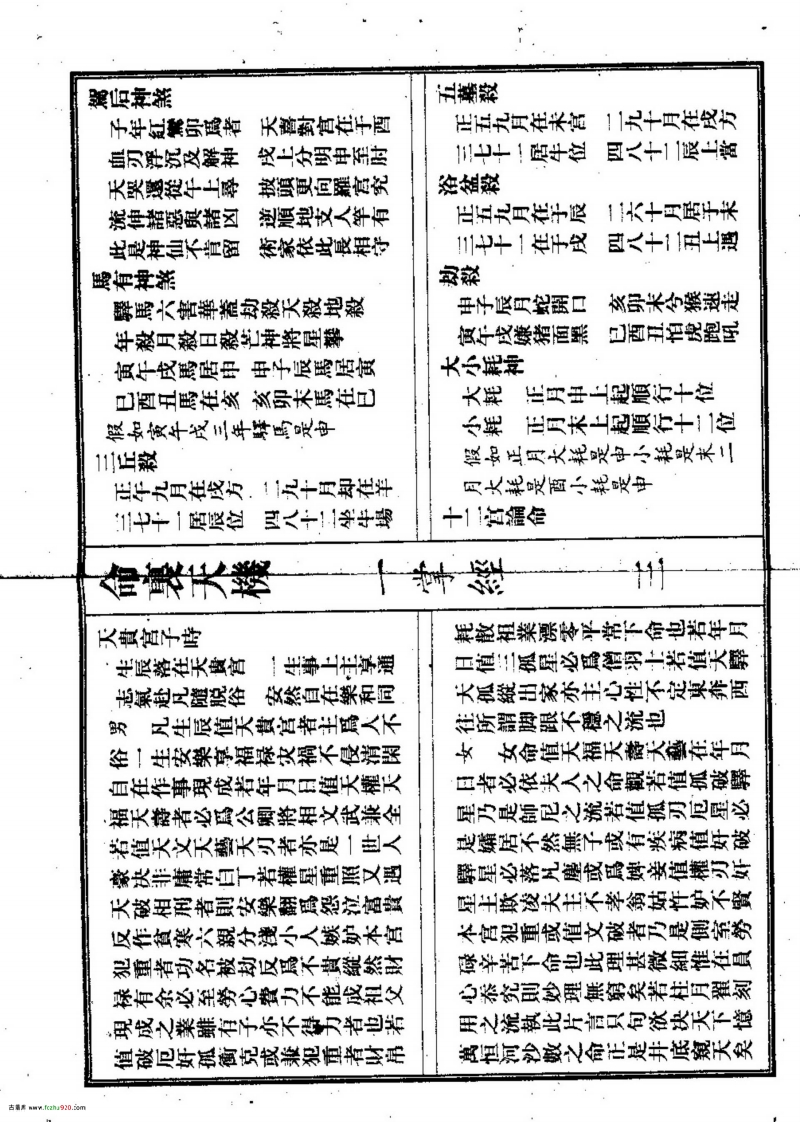 駕后神煞
子年紅鸞卯為者　天喜對宫在于酉
血刃浮沉及解神　戌上分明申至肘
天哭還從午上尋　披頭更向羅宫究
流伸諸惡與諸凶　逆順地支人竿有
此是神仙不肯留　術家依此長相守
馬有神煞
驛馬六害華蓋劫殺天殺地殺
年殺月殺日殺芒神將星攀
寅午戌馬居申　申子辰馬居寅
巳酉丑馬在亥　亥卯未馬在巳
假如寅午戌三年驛馬是申
三丘殺
正午九月在戌方　二九十月却在羊
三七十一居辰位　四八十二坐牛場
五墓殺
正五九月在未宫　二九十月在戌方
三七十一居牛位　四八十二辰上當
浴盆殺
正五九月在于辰　二六十月居于未
三七十一在于戌　四八十二丑上遇
劫殺
申子辰月蛇開口　亥卯未兮猴速走
寅午戌嫌猪面黑　巳酉丑怕虎跑吼
大小耗神
大耗　正月申上起順行十位
小耗　正月未上起順行十二位
假如正月大耗是申小耗是未二
月大耗是酉小耗是申
十二宫論命
命裏天機一掌經　三
天貴宫子時
生辰落在天貴宫　一生事上主享通
志氣赴凡隨脫俗　安然自在樂和同
男　凡生辰值天貴宫者主為人不
俗一生安樂享福禄灾禍不侵清閑
自在作事現成若年月日值天權天
福天壽者必為公卿將相文武兼全
若值天文天藝天刃者亦是一世人
豪决非庸常白丁若權星重照又遇
天破相刑者則安樂翻為怨泣富貴
反作貧寒六親分淺小人嫉妒本宫
犯重者功名被劫反為不貴縱然財
禄有余必至勞心費力不能成祖父
現成之業雖有子亦不得力者也若
值破厄奸孤衝兌或兼犯重者財帛
耗散祖業漂零平常下命也若年月
日值三孤星必為僧羽士若值天驛
天孤縱出家亦主心性不定東奔西
往所謂脚跟不穩之流也
女　女命值天福天壽天藝在年月
日者必依夫人之命觀若值孤破驛
星乃是師尼之流若值孤刃厄星必
是孀居不然無子或有疾病值奸破
驛星必落凡塵或為婢妾值權刃奸
星主欺凌夫主不孝翁姑忤妒不賢
本宫犯重或值文破者乃是側室勞
碌辛苦下命也此理甚微細惟在員
心叅究則妙理無窮矣若柱月翟刻
用之流執此片言只句欲决天下億
萬恒河沙數之命正是井底窺天矣
古籍库 www.fczhu920.com